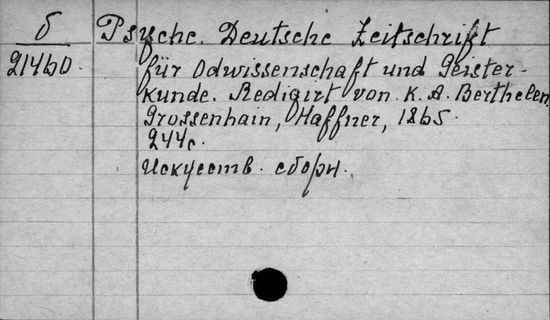 б Psyche. Deutsche Zeitschrift
21460. für Odwissenschaft und Geister-
kunde. Redigirt von K. A. Berthelen
Grossenhain, Haffner, 1865.
244с.
Искусств. сборн.